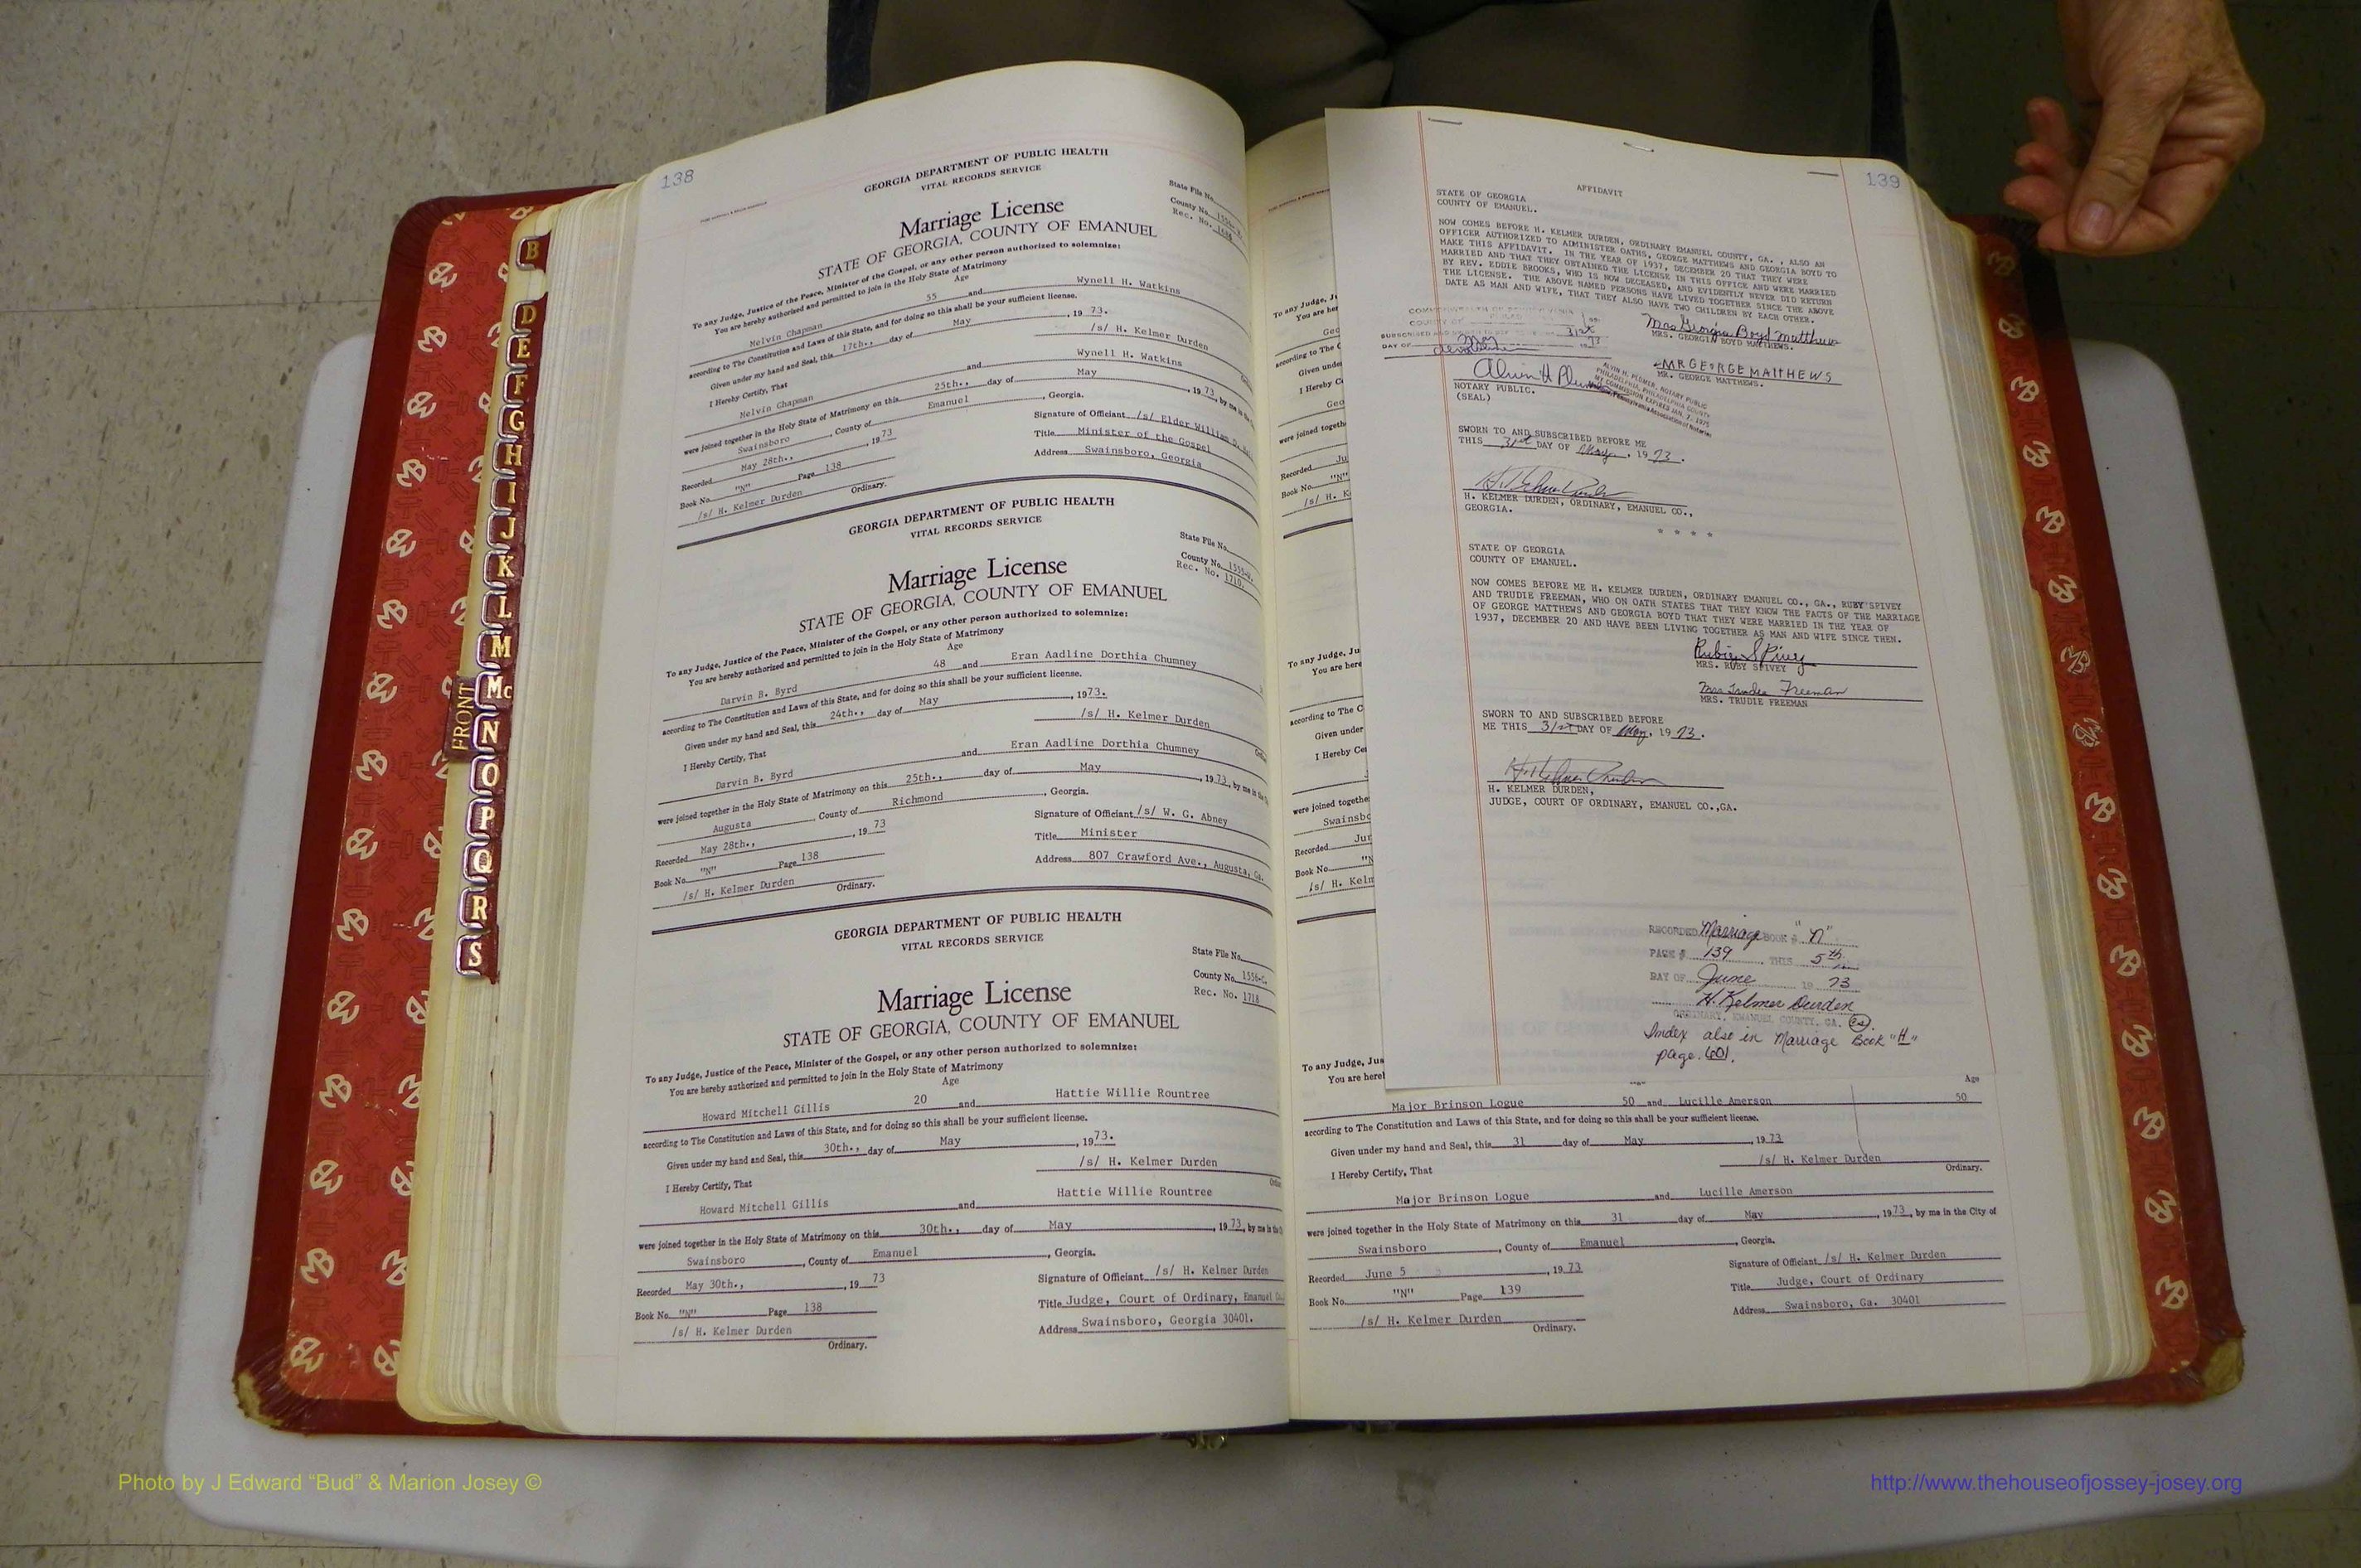 138
GEORGIA DEPARTMENT OF PUBLIC HEALTH
VITAL RECORDS SERVICE
State File No.
County No.
Rec. No.
Marriage License
STATE OF GEORGIA, COUNTY OF EMANUEL
To any Judge, Justice of the Peace, Minister of the Gospel, or any other person authorized to solemnize:
You are hereby authorized and permitted to join in the Holy State of Matrimony
Age
Melvin Chapman 55 and Wynell H. Watkins
according to The Constitution and Laws of this State, and for doing so this shall be your sufficient license.
Given under my hand and Seal, this 17th., day of May, 1973.
/s/ H. Kelmer Durden
I Hereby Certify, That
Melvin Chapman and Wynell H. Watkins
were joined together in the Holy State of Matrimony on this 25th., day of May, 1973, by me in the
Swainsboro, County of Emanuel, Georgia.
Recorded May 28th., 1973
Signature of Officiant /s/ Elder William
Book No. "N" Page 138
Title Minister of the Gospel
/s/ H. Kelmer Durden
Ordinary.
Address Swainsboro, Georgia
GEORGIA DEPARTMENT OF PUBLIC HEALTH
VITAL RECORDS SERVICE
State File No.
County No.
Rec. No. 1710.
Marriage License
STATE OF GEORGIA, COUNTY OF EMANUEL
To any Judge, Justice of the Peace, Minister of the Gospel, or any other person authorized to solemnize:
You are hereby authorized and permitted to join in the Holy State of Matrimony
Age
Darvin B. Byrd 48 and Eran Aadline Dorthia Chumney
according to The Constitution and Laws of this State, and for doing so this shall be your sufficient license.
Given under my hand and Seal, this 24th., day of May, 1973.
/s/ H. Kelmer Durden
I Hereby Certify, That
Darvin B. Byrd and Eran Aadline Dorthia Chumney
were joined together in the Holy State of Matrimony on this 25th., day of May, 1973, by me in the
Augusta, County of Richmond, Georgia.
Recorded May 28th., 1973
Signature of Officiant /s/ W. G. Abney
Book No. "N" Page 138
Title Minister
/s/ H. Kelmer Durden
Ordinary.
Address 807 Crawford Ave., Augusta, Ga.
GEORGIA DEPARTMENT OF PUBLIC HEALTH
VITAL RECORDS SERVICE
State File No.
County No. 1556-C.
Rec. No. 1718
Marriage License
STATE OF GEORGIA, COUNTY OF EMANUEL
To any Judge, Justice of the Peace, Minister of the Gospel, or any other person authorized to solemnize:
You are hereby authorized and permitted to join in the Holy State of Matrimony
Age
Howard Mitchell Gillis 20 and Hattie Willie Rountree
according to The Constitution and Laws of this State, and for doing so this shall be your sufficient license.
Given under my hand and Seal, this 30th., day of May, 1973.
/s/ H. Kelmer Durden
I Hereby Certify, That
Howard Mitchell Gillis and Hattie Willie Rountree
were joined together in the Holy State of Matrimony on this 30th., day of May, 1973, by me in the
Swainsboro, County of Emanuel, Georgia.
Recorded May 30th., 1973
Signature of Officiant /s/ H. Kelmer Durden
Book No. "N" Page 138
Title Judge, Court of Ordinary, Emanuel
/s/ H. Kelmer Durden
Ordinary.
Address Swainsboro, Georgia 30401.
B
D
E
F
G
H
I
J
K
L
M
Mc
N
O
P
Q
R
S
FRONT
139
AFFIDAVIT
STATE OF GEORGIA
COUNTY OF EMANUEL.
NOW COMES BEFORE H. KELMER DURDEN, ORDINARY EMANUEL COUNTY, GA. , ALSO AN
OFFICER AUTHORIZED TO ADMINISTER OATHS, GEORGE MATTHEWS AND GEORGIA BOYD TO
MAKE THIS AFFIDAVIT. IN THE YEAR OF 1937, DECEMBER 20 THAT THEY WERE
MARRIED AND THAT THEY OBTAINED THE LICENSE IN THIS OFFICE AND WERE MARRIED
BY REV. EDDIE BROOKS, WHO IS NOW DECEASED, AND EVIDENTLY NEVER DID RETURN
THE LICENSE. THE ABOVE NAMED PERSONS HAVE LIVED TOGETHER SINCE THE ABOVE
DATE AS MAN AND WIFE, THAT THEY ALSO HAVE TWO CHILDREN BY EACH OTHER.
Mrs Georgia Boyd Matthews
MRS. GEORGIA BOYD MATTHEWS.
MR GEORGE MATTHEWS
MR. GEORGE MATTHEWS.
DAY OF May 1973
NOTARY PUBLIC.
(SEAL)
ALVIN H. PLUMER, NOTARY PUBLIC
PHILADELPHIA, PHILADELPHIA COUNTY
MY COMMISSION EXPIRES JAN. 7, 1975
Pennsylvania Association of Notaries
SWORN TO AND SUBSCRIBED BEFORE ME
THIS 31st DAY OF May, 1973.
H. Kelmer Durden
H. KELMER DURDEN, ORDINARY, EMANUEL CO.,
GEORGIA.
* * * *
STATE OF GEORGIA
COUNTY OF EMANUEL.
NOW COMES BEFORE ME H. KELMER DURDEN, ORDINARY EMANUEL CO., GA., RUBY SPIVEY
AND TRUDIE FREEMAN, WHO ON OATH STATES THAT THEY KNOW THE FACTS OF THE MARRIAGE
OF GEORGE MATTHEWS AND GEORGIA BOYD THAT THEY WERE MARRIED IN THE YEAR OF
1937, DECEMBER 20 AND HAVE BEEN LIVING TOGETHER AS MAN AND WIFE SINCE THEN.
Rubie Spivey
MRS. RUBY SPIVEY
Mrs Trudie Freeman
MRS. TRUDIE FREEMAN
SWORN TO AND SUBSCRIBED BEFORE
ME THIS 31st DAY OF May, 1973.
H. Kelmer Durden
H. KELMER DURDEN,
JUDGE, COURT OF ORDINARY, EMANUEL CO.,GA.
RECORDED Marriage BOOK # "N"
PAGE # 139 THIS 5th
DAY OF June 1973
H. Kelmer Durden
ORDINARY, EMANUEL COUNTY, GA.
Index also in Marriage Book "H"
page 601.
Age
Major Brinson Logue 50 and Lucille Amerson 50
according to The Constitution and Laws of this State, and for doing so this shall be your sufficient license.
Given under my hand and Seal, this 31 day of May, 1973
/s/ H. Kelmer Durden
Ordinary.
I Hereby Certify, That
Major Brinson Logue and Lucille Amerson
were joined together in the Holy State of Matrimony on this 31 day of May, 1973, by me in the City of
Swainsboro, County of Emanuel, Georgia.
Recorded June 5, 1973
Signature of Officiant /s/ H. Kelmer Durden
Book No. "N" Page 139
Title Judge, Court of Ordinary
/s/ H. Kelmer Durden
Ordinary.
Address Swainsboro, Ga. 30401
Photo by J Edward “Bud” & Marion Josey ©
http://www.thehouseofjossey-josey.org